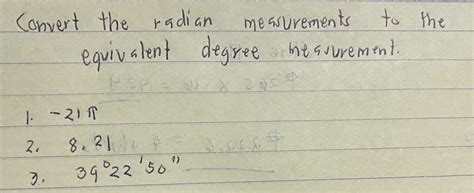 Convert the radian measurements to the
equivalent degree measurement.
1. -21π
2. 8.21
3. 39°22'50"